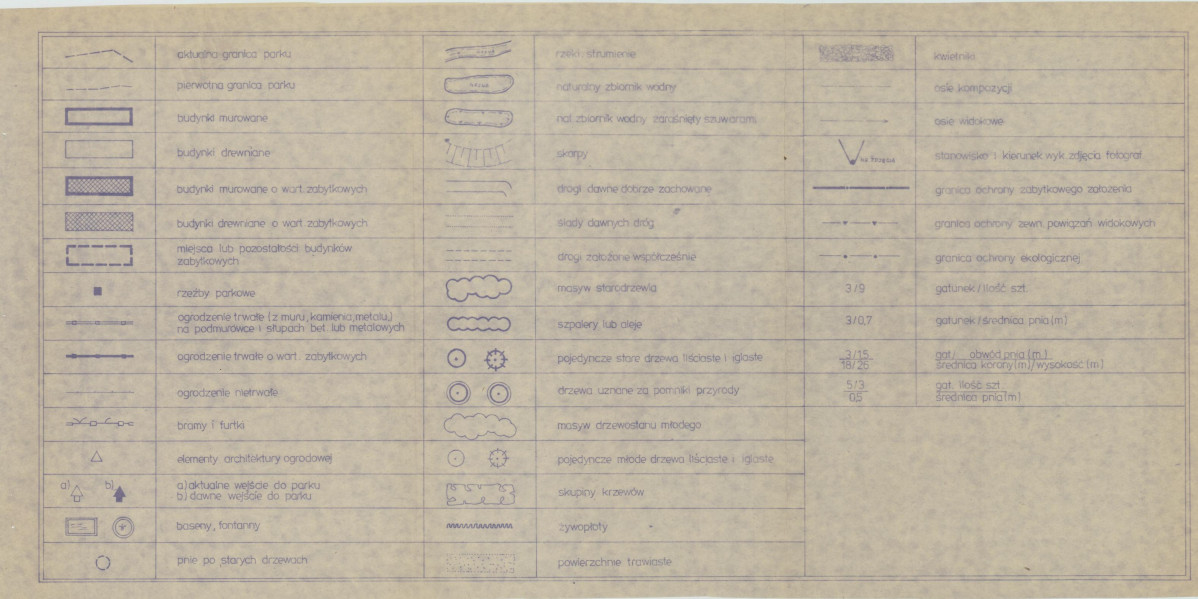 aktualna granica parku
pierwotna granica parku
budynki murowane
budynki drewniane
budynki murowane o wart. zabytkowych
budynki drewniane o wart. zabytkowych
miejsca lub pozostałości budynków
zabytkowych
rzeźby parkowe
ogrodzenie trwałe (z muru, kamienia, metalu,)
na podmurówce i słupach bet. lub metalowych
ogrodzenie trwałe o wart. zabytkowych
ogrodzenie nietrwałe
bramy i furtki
elementy architektury ogrodowej
a) b)
a) aktualne wejście do parku
b) dawne wejście do parku
baseny, fontanny
pnie po starych drzewach
rzeki, strumienie
naturalny zbiornik wodny
nat. zbiornik wodny zarośnięty szuwarami
skarpy
drogi dawne dobrze zachowane
ślady dawnych dróg
drogi założone współcześnie
masyw starodrzewia
szpalery lub aleje
pojedyncze stare drzewa liściaste i iglaste
drzewa uznane za pomniki przyrody
masyw drzewostanu młodego
pojedyncze młode drzewa liściaste i iglaste
skupiny krzewów
żywopłoty
powierzchnie trawiaste
kwietniki
osie kompozycji
osie widokowe
stanowisko i kierunek wyk. zdjęcia fotograf.
granica ochrony zabytkowego założenia
granica ochrony zewn. powiązań widokowych
granica ochrony ekologicznej
3/9 gatunek/ilość szt.
3/0,7 gatunek/średnica pnia (m)
3/15 gat./ obwód pnia (m.)
18/26 średnica korony (m)/wysokość (m)
5/3 gat. ilość szt.
0,5 średnica pnia (m)